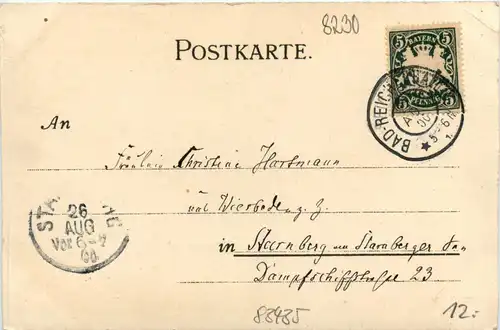 8230
POSTKARTE.
5 BAYERN 5
5 PFENNIG 5
BAD-REICHENHALL
AUG
5-6N
An
Fräulein Christine Hartmann
aus Wiesbaden z. Z.
in Starnberg am Starnberger See
Dampfschiffstraße 23
STARNBERG
26
AUG
Vor 6-7
00
83485
12.-